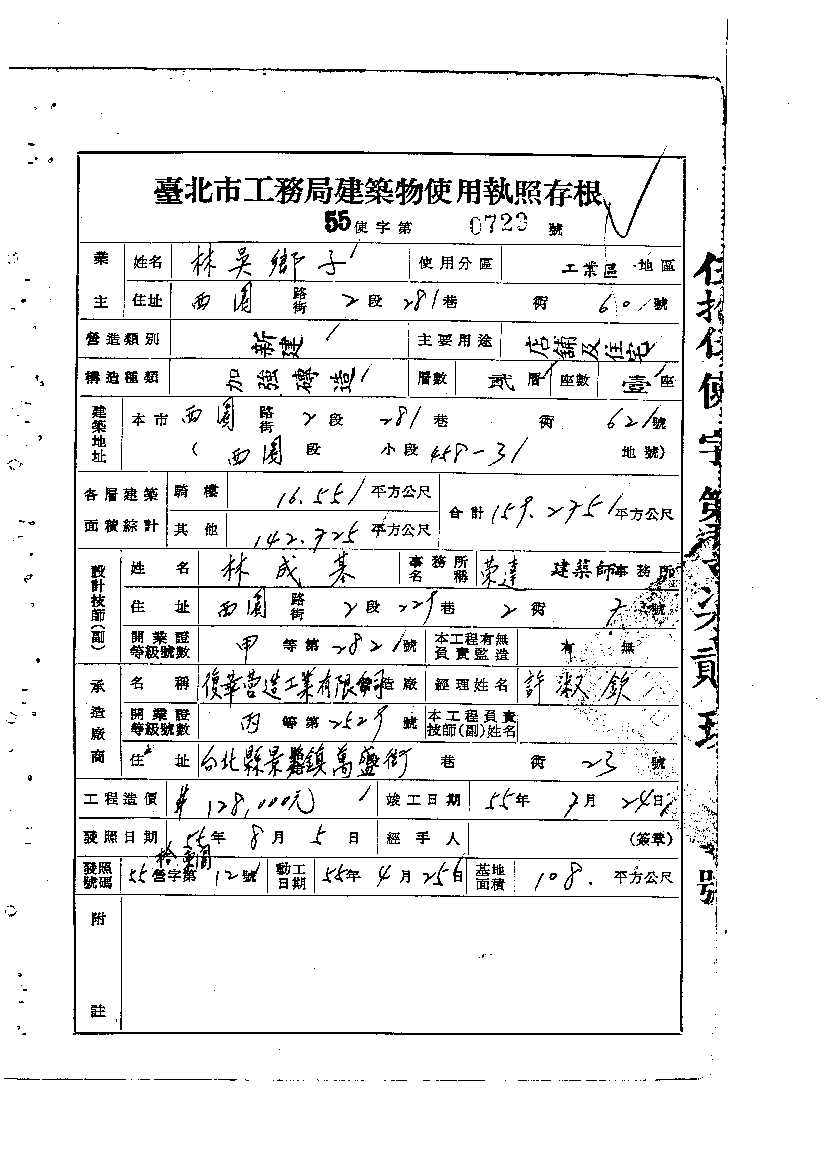 臺北市工務局建築物使用執照存根
55使字第 0729 號
業主 姓名 林吳鄉子 使用分區 工業區 地區
住址 西園 路街 2段 281巷 衖 60 號
營造類別 新建 主要用途 店舖及住宅
構造種類 加強磚造 層數 貳層 座數 壹座
建築地址 本市 西園 路街 2段 281巷 衖 62 號
( 西園段 小段 458-31 地號)
各層建築面積綜計 騎樓 16.55 平方公尺 合計 159.275 平方公尺
其他 142.725 平方公尺
設計技師(副) 姓名 林成基 事務所名稱 榮達 建築師事務所
住址 西園 路街 2段 229巷 2衖 7 號
開業證等級號數 甲 等第 282 號 本工程有無負責監造 有 無
承造廠商 名稱 復華營造工業有限公司 造廠 經理姓名 許淑欽
開業證等級號數 丙 等第 2529 號 本工程負責技師(副)姓名
住址 台北縣景美鎮萬盛街 巷 衖 23 號
工程造價 128,000元 竣工日期 55年 7月 24日
發照日期 55年 8月 5日 經手人 (簽章)
發照號碼 55 營字第 12 號 動工日期 55年 4月 25日 基地面積 108. 平方公尺
附註
使字第
號